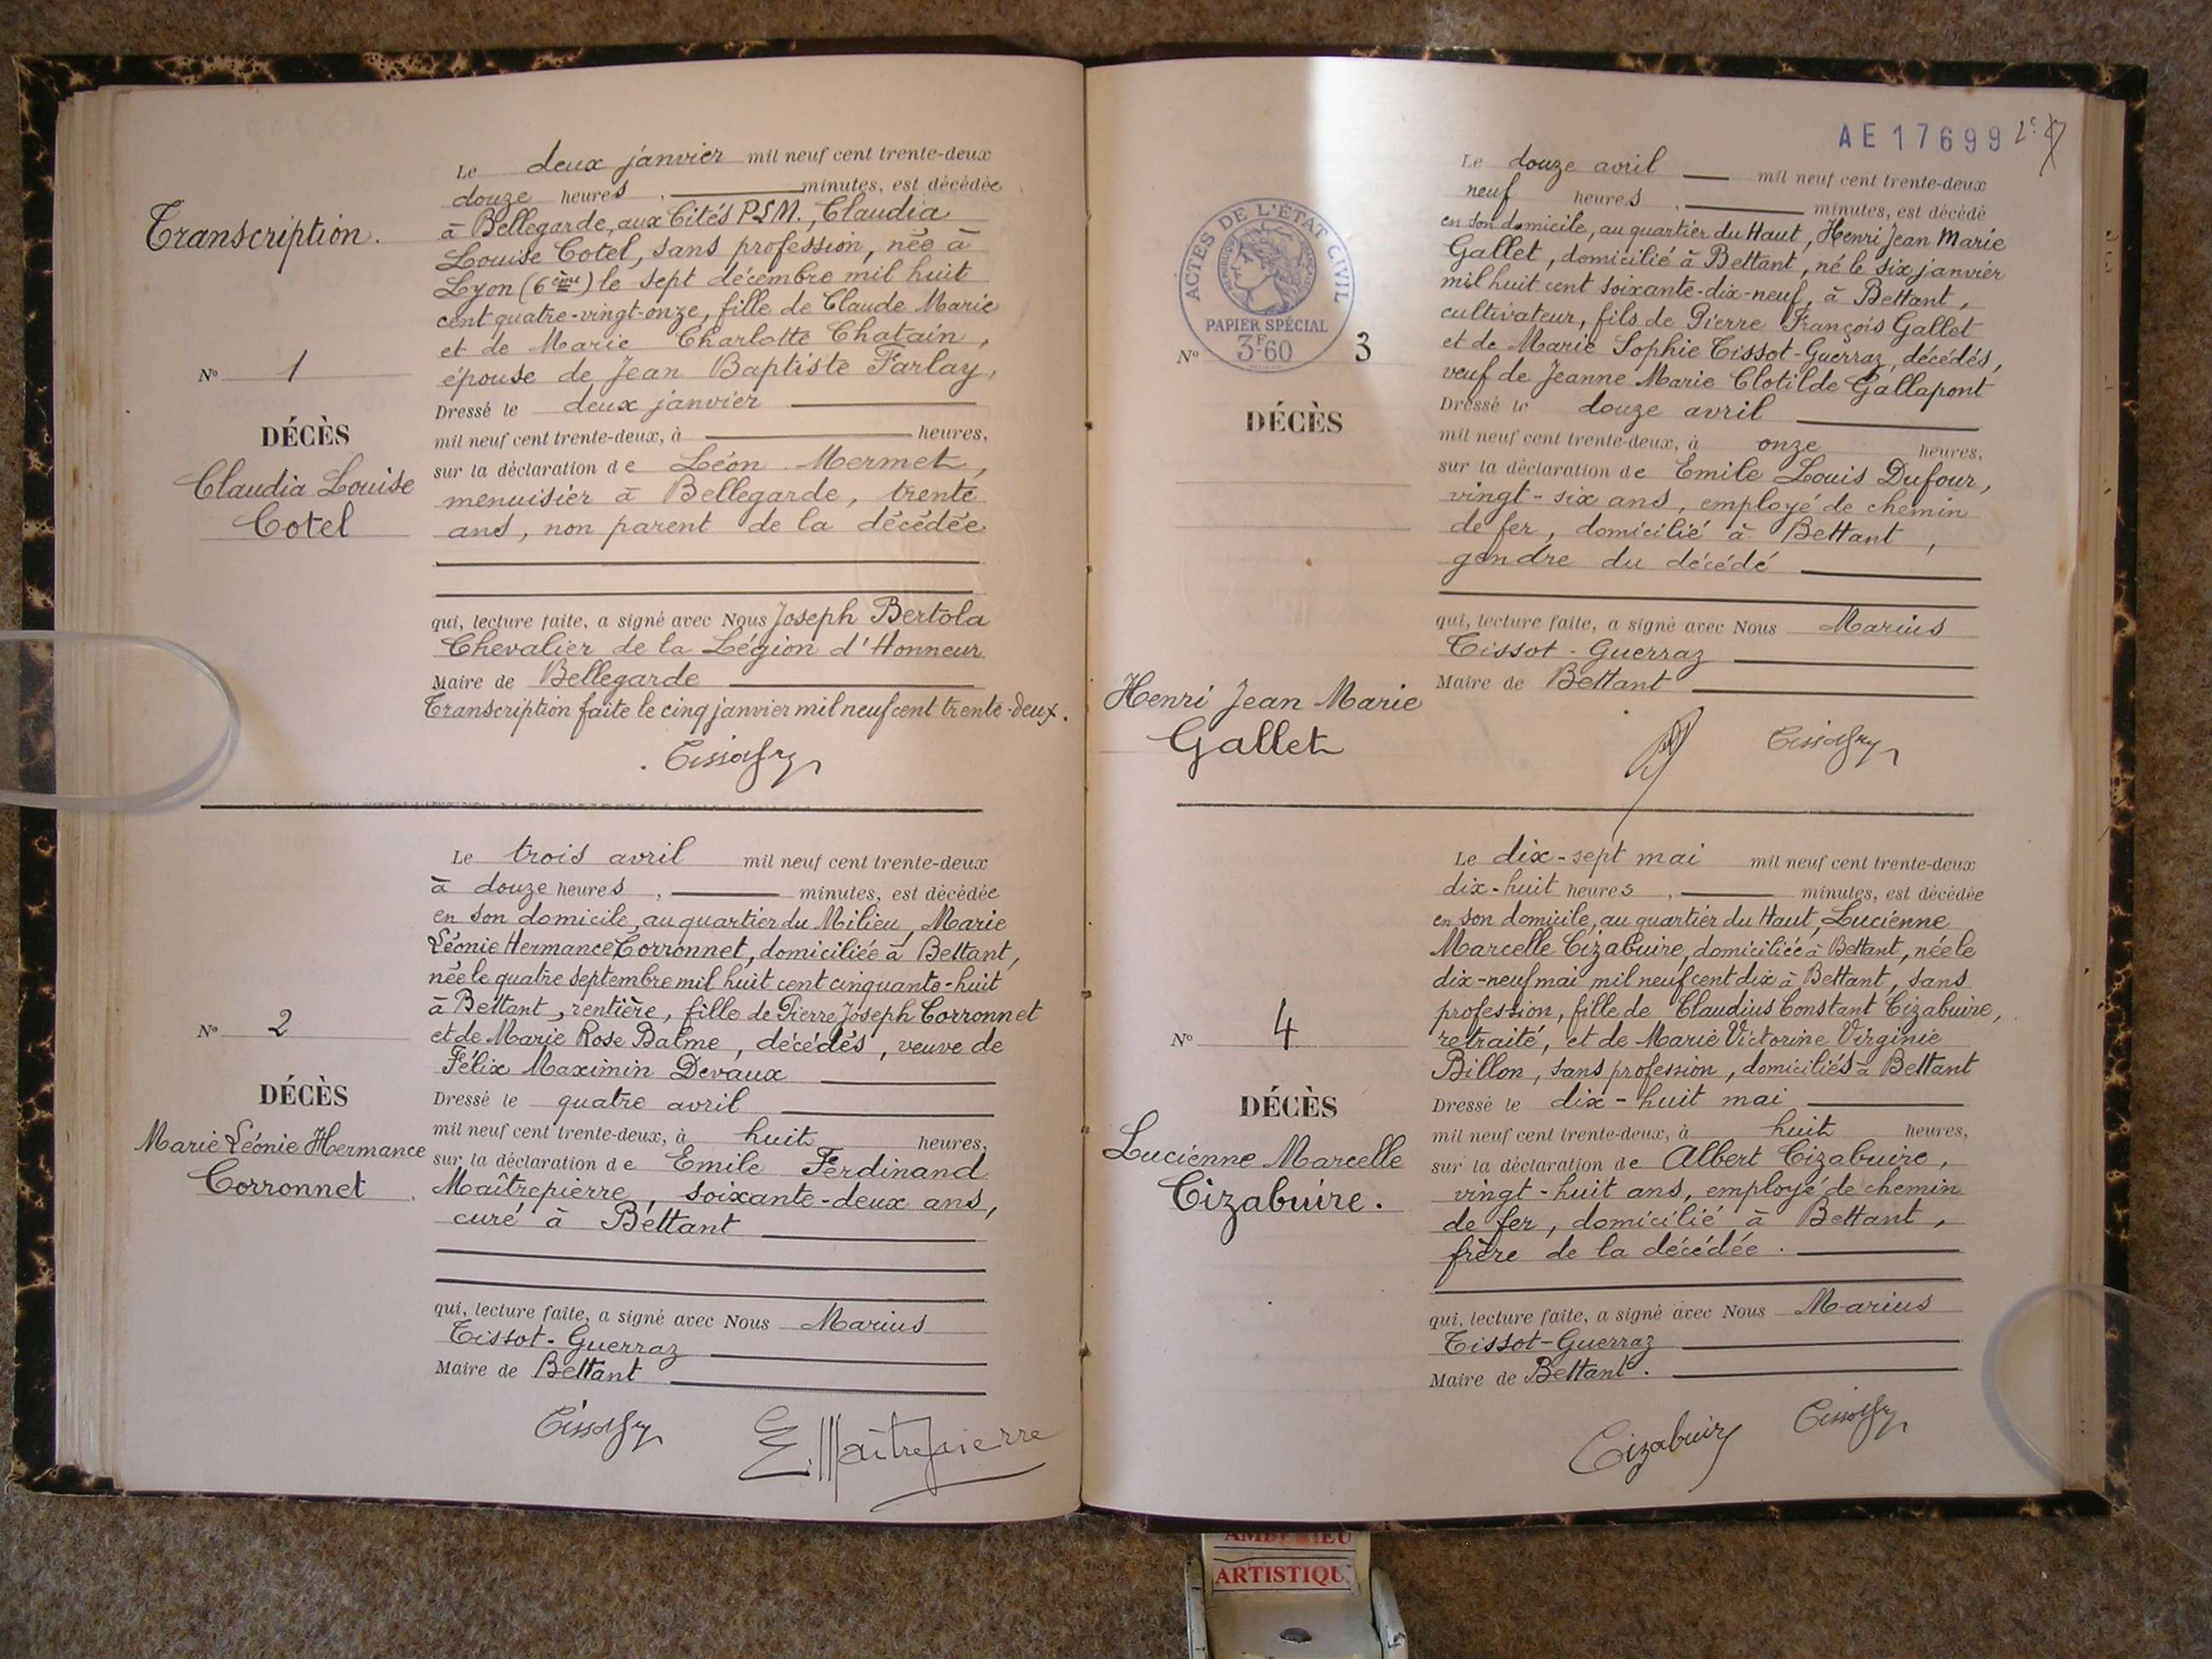 Transcription.
N° 1
DÉCÈS
Claudia Louise
Cotel
Le deux janvier mil neuf cent trente-deux
douze heures , minutes, est décédée
à Bellegarde, aux Cités P.L.M., Claudia
Louise Cotel, sans profession, née à
Lyon (6ème) le sept décembre mil huit
cent quatre-vingt-onze, fille de Claude Marie
et de Marie Charlotte Chatain,
épouse de Jean Baptiste Farlay,
Dressé le deux janvier
mil neuf cent trente-deux, à heures,
sur la déclaration de Léon Mermet,
menuisier à Bellegarde, trente
ans, non parent de la décédée
qui, lecture faite, a signé avec Nous Joseph Bertola
Chevalier de la Légion d'Honneur
Maire de Bellegarde
Transcription faite le cinq janvier mil neuf cent trente-deux.
N° 2
DÉCÈS
Marie Léonie Hermance
Corronnet
Le trois avril mil neuf cent trente-deux
à douze heures , minutes, est décédée
en son domicile, au quartier du Milieu, Marie
Léonie Hermance Corronnet, domiciliée à Bettant,
née le quatre septembre mil huit cent cinquante-huit
à Bettant, rentière, fille de Pierre Joseph Corronnet
et de Marie Rose Balme, décédés, veuve de
Félix Maximin Devaux
Dressé le quatre avril
mil neuf cent trente-deux, à huit heures,
sur la déclaration de Emile Ferdinand
Maîtrepierre, soixante-deux ans,
curé à Bettant
qui, lecture faite, a signé avec Nous Marius
Tissot-Guerraz
Maire de Bettant
E. Maîtrepierre
AE17699
ACTES DE L'ÉTAT CIVIL
PAPIER SPÉCIAL
3F60
N° 3
DÉCÈS
Henri Jean Marie
Gallet
Le douze avril mil neuf cent trente-deux
neuf heures , minutes, est décédé
en son domicile, au quartier du Haut, Henri Jean Marie
Gallet, domicilié à Bettant, né le six janvier
mil huit cent soixante-dix-neuf, à Bettant,
cultivateur, fils de Pierre François Gallet
et de Marie Sophie Tissot-Guerraz, décédés,
veuf de Jeanne Marie Clotilde Gallapont
Dressé le douze avril
mil neuf cent trente-deux, à onze heures,
sur la déclaration de Emile Louis Dufour,
vingt-six ans, employé de chemin
de fer, domicilié à Bettant,
gendre du décédé
qui, lecture faite, a signé avec Nous Marius
Tissot-Guerraz
Maire de Bettant
N° 4
DÉCÈS
Lucienne Marcelle
Cizabuire.
Le dix-sept mai mil neuf cent trente-deux
dix-huit heures , minutes, est décédée
en son domicile, au quartier du Haut, Lucienne
Marcelle Cizabuire, domiciliée à Bettant, née le
dix-neuf mai mil neuf cent dix à Bettant, sans
profession, fille de Claudius Constant Cizabuire,
retraité, et de Marie Victorine Virginie
Billon, sans profession, domiciliés à Bettant
Dressé le dix-huit mai
mil neuf cent trente-deux, à huit heures,
sur la déclaration de Albert Cizabuire,
vingt-huit ans, employé de chemin
de fer, domicilié à Bettant,
frère de la décédée.
qui, lecture faite, a signé avec Nous Marius
Tissot-Guerraz
Maire de Bettant.
AMBERIEU
ARTISTIQU